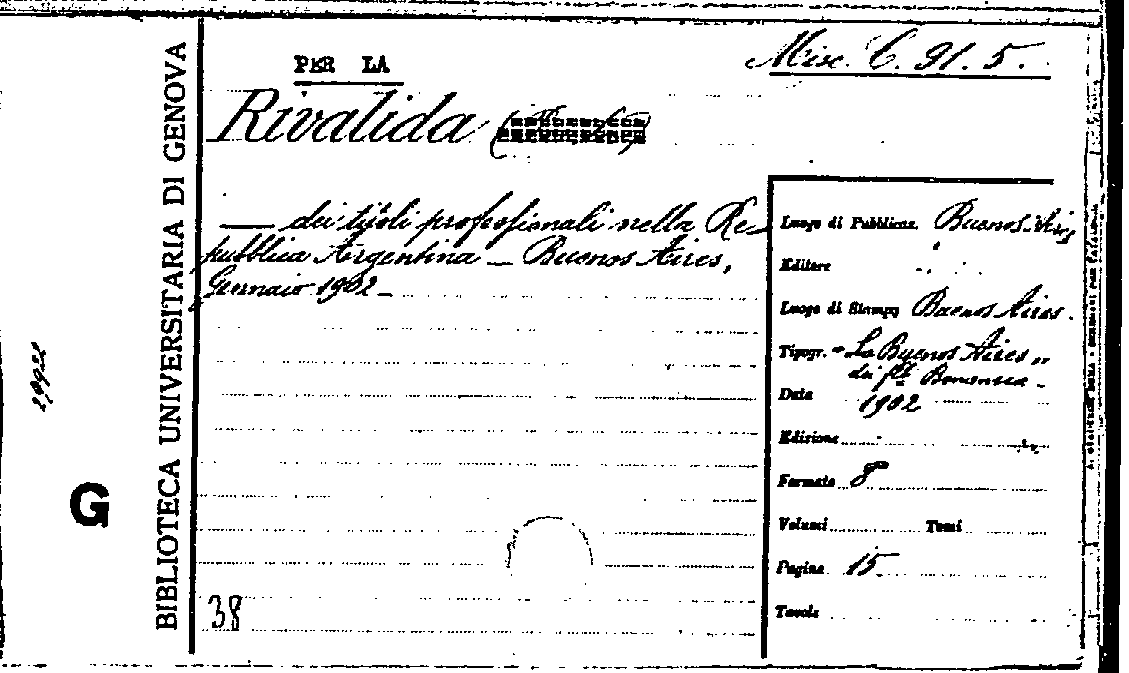 Misc. C. 91. 5.
PER LA
Rivalida
— dei titoli professionali nella Re-
pubblica Argentina — Buenos Aires,
Gennaio 1902 —
Luogo di Pubblicaz. Buenos Aires
Editore
Luogo di Stampa Buenos Aires.
Tipogr. "La Buenos Aires"
dei
Data 1902
Edizione
Formato 8°
Volumi Tomi
Pagine 15
Tavole
38
BIBLIOTECA UNIVERSITARIA DI GENOVA
G